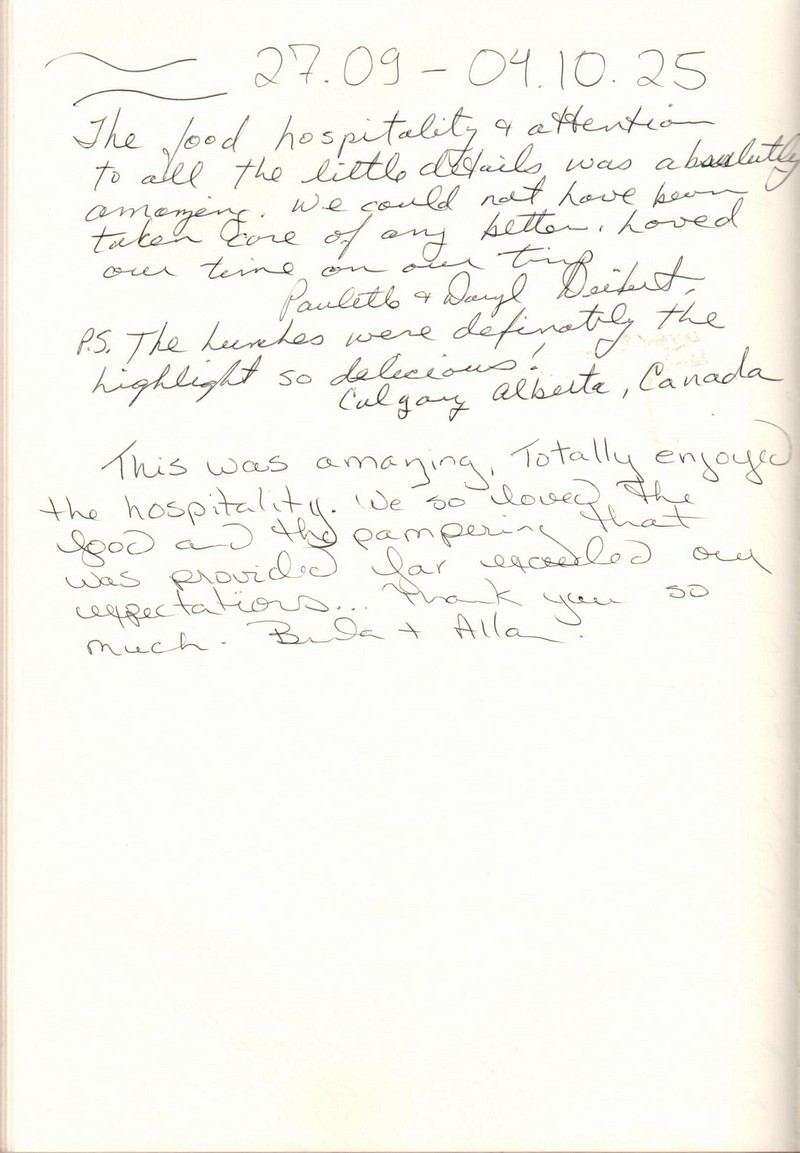 27.09 – 04.10.25
The food hospitality & attention
to all the little details was absolutly
amazing. We could not have been
taken care of any better. Loved
our time on our trip
Paulette & Daryl
P.S. The lunches were definatly the
highlight so delecious!
Calgary Alberta, Canada
This was amazing, Totally enjoyed
the hospitality. We so loved the
food and the pampering that
was provided far exceeded our
expectations... Thank you so
much. + Allan.